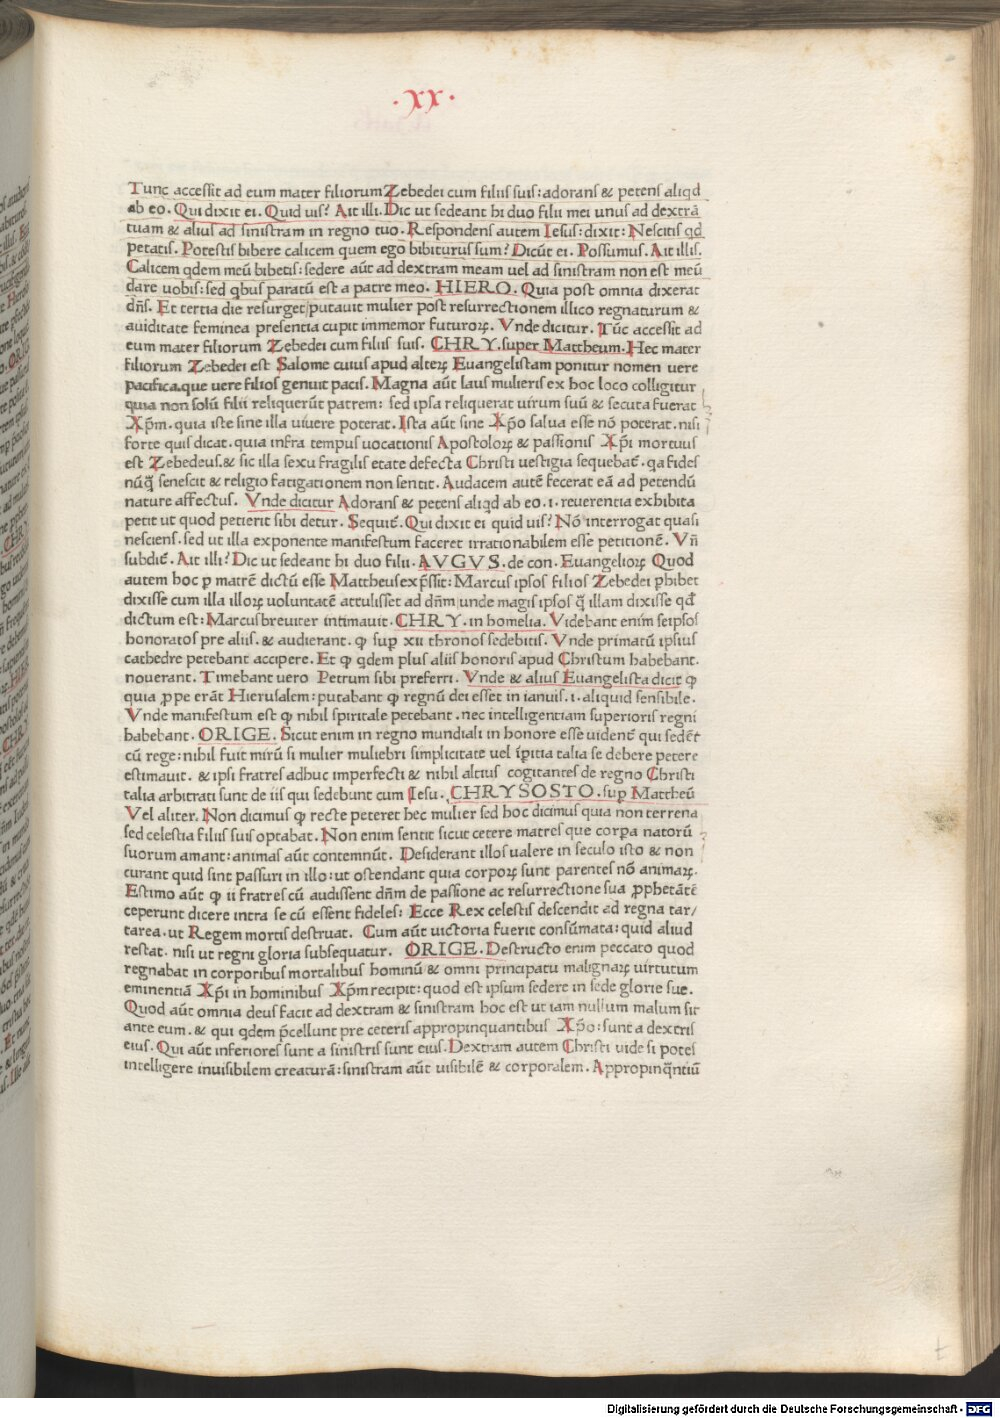 .XX.
Tunc accessit ad eum mater filiorum Zebedei cum filiis suis: adorans & petens aliqd
ab eo. Qui dixit ei. Quid uis? Ait illi. Dic ut sedeant hi duo filii mei unus ad dextrā
tuam & alius ad sinistram in regno tuo. Respondens autem Iesus: dixit: Nescitis qd
petatis. Potestis bibere calicem quem ego bibiturus sum? Dicūt ei. Possumus. Ait illis.
Calicem qdem meū bibetis: sedere aūt ad dextram meam uel ad sinistram non est meū
dare uobis: sed qbus paratū est a patre meo. HIERO. Quia post omnia dixerat
dn̄s. Et tertia die resurget/putauit mulier post resurrectionem illico regnaturum &
auiditate feminea presentia cupit immemor futuroꝝ. Vnde dicitur. Tūc accessit ad
eum mater filiorum Zebedei cum filiis suis. CHRY. super Mattheum. Hec mater
filiorum Zebedei est Salome cuius apud alteꝝ Euangelistam ponitur nomen uere
pacifica. que uere filios genuit pacis. Magna aūt laus mulieris ex hoc loco colligitur
quia non solū filii reliquerūt patrem: sed ipsa reliquerat uirum suū & secuta fuerat
Xp̄m. quia iste sine illa uiuere poterat. Ista aūt sine Xp̄o salua esse nō poterat. nisi
forte quis dicat. quia infra tempus uocationis Apostoloꝝ & passionis Xp̄i mortuus
est Zebedeus. & sic illa sexu fragilis etate defecta Christi uestigia sequebat̄. qa fides
nūq̄ senescit & religio fatigationem non sentit. Audacem autē fecerat eā ad petendū
nature affectus. Vnde dicitur Adorans & petens aliqd ab eo. i. reuerentia exhibita
petit ut quod petierit sibi detur. Sequit̄. Qui dixit ei quid uis? Nō interrogat quasi
nesciens. sed ut illa exponente manifestum faceret irrationabilem esse petitionē. Vn̄
subdit̄. Ait illi? Dic ut sedeant hi duo filii. AVGVS. de con. Euangelioꝝ Quod
autem hoc ꝑ matrē dictū esse Mattheus exp̄ssit: Marcus ipsos filios Zebedei ꝑhibet
dixisse cum illa illoꝝ uoluntatē attulisset ad dn̄m/unde magis ipsos q̄ illam dixisse qd̄
dictum est: Marcus breuiter intimauit. CHRY. in homelia. Videbant enim seipsos
honoratos pre aliis. & audierant. ꝙ sup̱ xii thronos sedebitis. Vnde primatū ipsius
cathedre petebant accipere. Et ꝙ qdem plus aliis honoris apud Christum habebant.
nouerant. Timebant uero Petrum sibi preferri. Vnde & alius Euangelista dicit ꝙ
quia ꝓpe erāt Hierusalem: putabant ꝙ regnū dei esset in ianuis. i. aliquid sensibile.
Vnde manifestum est ꝙ nihil spiritale petebant. nec intelligentiam superioris regni
habebant. ORIGE. Sicut enim in regno mundiali in honore esse uident̄ qui sedēt
cū rege: nihil fuit mirū si mulier muliebri simplicitate uel īpitia talia se debere petere
estimauit. & ipsi fratres adhuc imperfecti & nihil altius cogitantes de regno Christi
talia arbitrati sunt de iis qui sedebunt cum Iesu. CHRYSOSTO. sup̱ Mattheū
Vel aliter. Non dicimus ꝙ recte peteret hec mulier sed hoc dicimus quia non terrena
sed celestia filiis suis optabat. Non enim sentit sicut cetere matres que corpa natorū
suorum amant: animas aūt contemnūt. Desiderant illos ualere in seculo isto & non
curant quid sint passuri in illo: ut ostendant quia corpoꝝ sunt parentes nō animaꝝ.
Estimo aūt ꝙ ii fratres cū audissent dn̄m de passione ac resurrectione sua ꝓphetātē
ceperunt dicere intra se cū essent fideles: Ecce Rex celestis descendit ad regna tar/
tarea. ut Regem mortis destruat. Cum aūt uictoria fuerit consūmata: quid aliud
restat. nisi ut regni gloria subsequatur. ORIGE. Destructo enim peccato quod
regnabat in corporibus mortalibus hominū & omni principatu malignaꝝ uirtutum
eminentiā Xp̄i in hominibus Xp̄m recipit: quod est ipsum sedere in sede glorie sue.
Quod aūt omnia deus facit ad dextram & sinistram hoc est ut iam nullum malum sit
ante eum. & qui qdem p̄cellunt pre ceteris appropinquantibus Xp̄o: sunt a dextris
eius. Qui aūt inferiores sunt a sinistris sunt eius. Dextram autem Christi uide si potes
intelligere inuisibilem creaturā: sinistram aūt uisibilē & corporalem. Appropinq̄ntiū
Digitalisierung gefördert durch die Deutsche Forschungsgemeinschaft - DFG